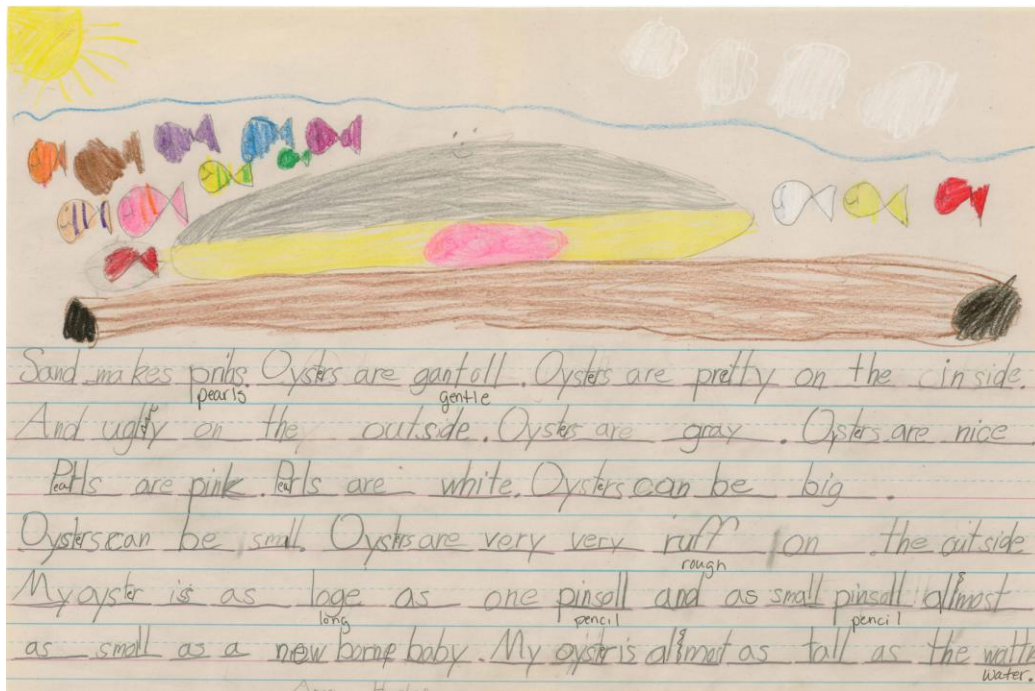 Sand makes prihs. Oysters are gantoll. Oysters are pretty on the inside.
pearls gentle
And uglly on the outside. Oysters are gray. Oysters are nice
Pearls are pink. Pearls are white. Oysters can be big.
Oysters can be small. Oysters are very very ruff on the outside
rough
My oyster is as loge as one pinsoll and as small pinsoll allmost
long pencil pencil
as small as a new borne baby. My oyster is allmost as tall as the
water.